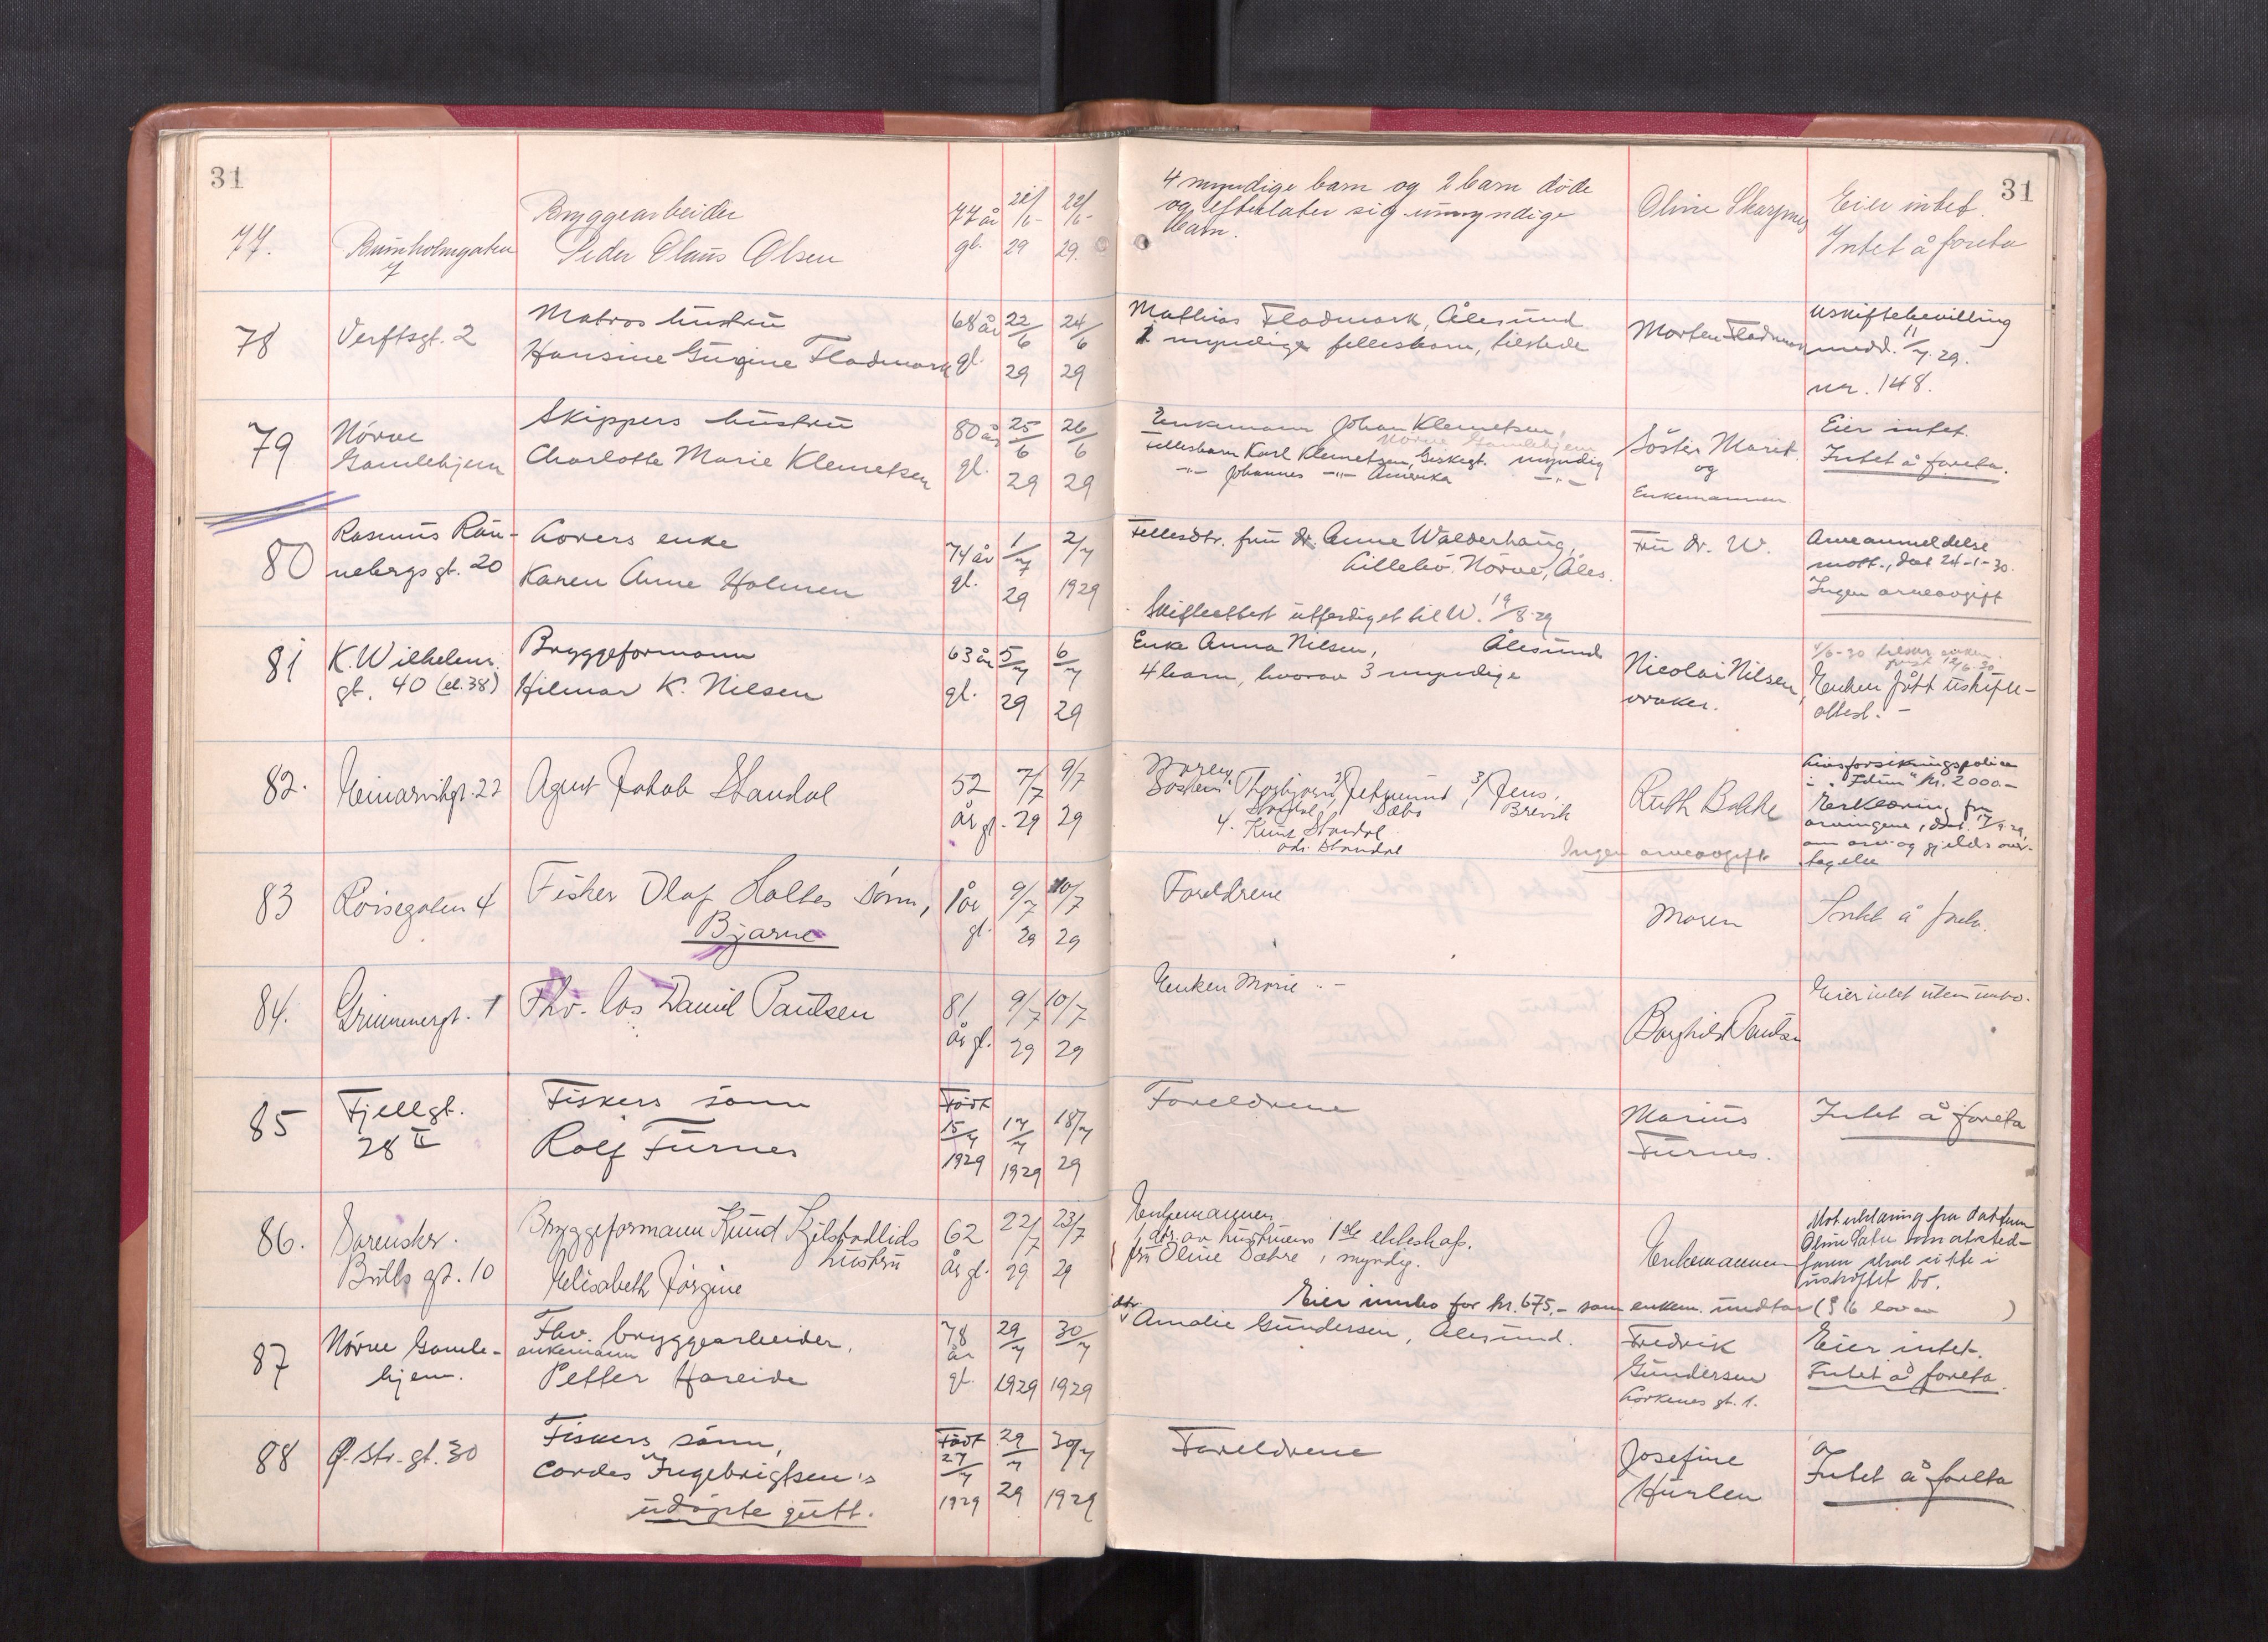 31
77.
Bunholmgaten
7
Bryggearbeider
Peder Olaus Olsen
77 år
gl.
29
29.
4 myndige barn og 2 barn døde
og efterlater sig umyndige
barn.
Oline Skarpnes
31
Eier intet.
Intet å foreta
78
Verftsgt. 2
Matros hustru
Hansine Gurine Fladmark
68 år
gl.
22/6
29
24/6
29
Mathias Fladmark, Ålesund
1 myndige fellesbarn, tilstede
Morten Fladmark
Uskiftebevilling
medd. 11/7.29.
nr. 148.
79
Nørve
Gamlehjem
Skippers hustru
Charlotte Marie Klemetsen
80 år
gl.
25/6
29
26/6
29
Enkemann Johan Klemetsen,
Nørve Gamlehjem
Fellesbarn Karl Klemetsen, Giskegt. myndig
-"- Johannes -"- Amerika -"-
Søster Marit
og
Enkemannen
Eier intet.
Intet å foreta.
80
Rasmus Røn-
nebergs gt. 20
Lovers enke
Karen Anne Holmen
74 år
gl.
1/7
29
2/7
1929
Fellesdtr. fru dr. Anne Walderhaug,
Lillebo, Nørve, Åles.
Skifteattest utferdiget til W. 19/8-29
Fru dr. W.
Arveanmeldelse
mott., dat. 24-1-30.
Ingen arveavgift
81
K. Wilhelms
gt. 40 (el. 38)
Bryggeformann
Hilmar K. Nilsen
63 år
gl.
5/7
29
6/7
29
Enke Anna Nilsen, Ålesund
4 barn, hvorav 3 myndige
Nicolai Nilsen,
vraker.
Enken fått uskifte-
attest. -
82.
Einarvikgt. 22
Agent Jakob Standal
52
år gl.
7/7
29
9/7
29
Søsken: Thorbjørn, 2/ Jetmund, 3/ Jens,
Standal, Sæbø Brevik
4. Knut Standal
adr. Standal
Ingen arveavgift
Ruth Bakke
Livsforsikringspolice
i "Idun" kr. 2000.-
Erklæring fra
arvingene, dat. 17/9.29,
om arv og gjelds over-
tagelse
83
Røisegaten 4
Fisker Olaf Holtes sønn,
Bjarne
1 år
gl.
9/7
29
10/7
29
Foreldrene
Moren
Intet å foreta.
84.
Grimmergt. 1
Fhv. los Daniel Paulsen
81
år gl.
9/7
29
10/7
29
Enken Marie . -
Borghild Paulsen
Eier intet uten innbo.
85
Fjellgt.
28 II
Fiskers sønn
Rolf Furnes
Født
15/7
1929
17/7
1929
18/7
29
Foreldrene
Marius
Furnes.
Intet å foreta
86.
Sorensker.
Bulls gt. 10
Bryggeformann Knud Kjelstadlids
hustru
Elisabeth Jørgine
62
år gl.
22/7
29
23/7
29
Enkemannen
1 dtr. av hustruens 1ste ekteskap.
fru Oline Sætre, myndig.
Eier innbo for kr. 675,- som enkem. undtar (§ 16 lov av )
Enkemannen
Mot erklæring fra datteren
Oline Sætre som avsted-
faren skal sitte i
uskiftet bo.
87
Nørve Gamle-
hjem.
Fhv. bryggearbeider,
enkemann
Petter Hareide
78
år
gl.
29/7
1929
30/7
1929
dtr.
Amalie Gundersen, Ålesund.
Fredrik
Gundersen
Lorkenes gt. 1.
Eier intet.
Intet å foreta.
88
Ø. Str. gt. 30
Fiskers sønn,
Cordes Ingebrigtsen's
udøpte gutt.
Født
27/7
1929
29/7
29
30/7
1929
Foreldrene
Josefine
Hurlen
Intet å foreta